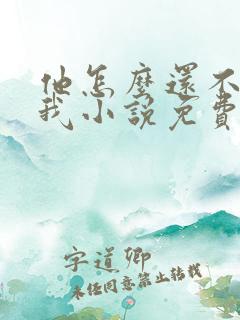 他怎麼還不
我小說免費
字道卿
未经同意禁止转载